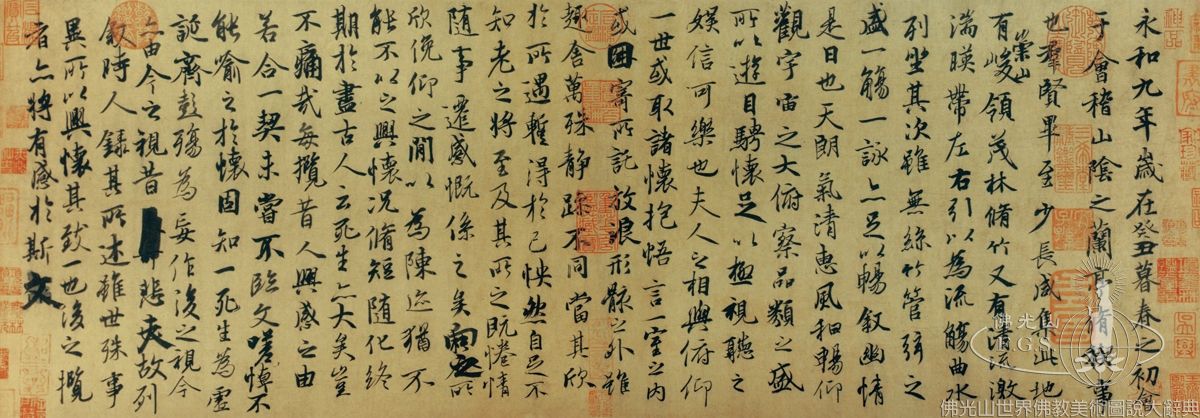 永和九年歲在癸丑暮春之初會
于會稽山陰之蘭亭脩稧事
也羣賢畢至少長咸集此地
有崇山峻領茂林脩竹又有清流激
湍暎帶左右引以為流觴曲水
列坐其次雖無絲竹管弦之
盛一觴一詠亦足以暢敘幽情
是日也天朗氣清惠風和暢仰
觀宇宙之大俯察品類之盛
所以遊目騁懷足以極視聽之
娛信可樂也夫人之相與俯仰
一世或取諸懷抱悟言一室之內
或因寄所託放浪形骸之外雖
趣舍萬殊靜躁不同當其欣
於所遇暫得於己怏然自足不
知老之將至及其所之既惓情
隨事遷感慨係之矣向之所
欣俛仰之閒以為陳迹猶不
能不以之興懷況脩短隨化終
期於盡古人云死生亦大矣豈
不痛哉每攬昔人興感之由
若合一契未嘗不臨文嗟悼不
能喻之於懷固知一死生為虛
誕齊彭殤為妄作後之視今
亦由今之視昔悲夫故列
敘時人錄其所述雖世殊事
異所以興懷其致一也後之攬
者亦將有感於斯文
佛光山
FGS
佛光山世界佛教美術圖說大辭典